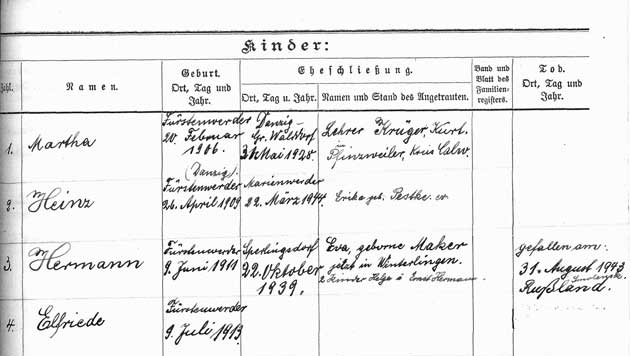 Kinder:
Zahl. Namen. Geburt. Ort, Tag und Jahr. Eheschließung. Ort, Tag u. Jahr. Namen und Stand des Angetrauten. Band und Blatt des Familienregisters. Tod. Ort, Tag und Jahr.
1. Martha
Fürstenwerder
20. Februar
1906.
(Danzig).
Danzig-
Gr. Walddorf
31. Mai 1928.
Lehrer Krüger, Kurt.
Pfinzweiler, Kreis Calw.
2. Heinz
Fürstenwerder
26. April 1909
Marienwerder
22. März 1944.
Erika geb. Pestke. ev
3. Hermann
Fürstenwerder
9. Juni 1911
Sperlingsdorf
22. Oktober
1939.
Eva, geborne Maker
jetzt in Winterlingen.
2 Kinder Helga u Ernst Hermann
gefallen am:
31. August 1943
Smolensk
Rußland.
4. Elfriede
Fürstenwerder
9. Juli 1913.